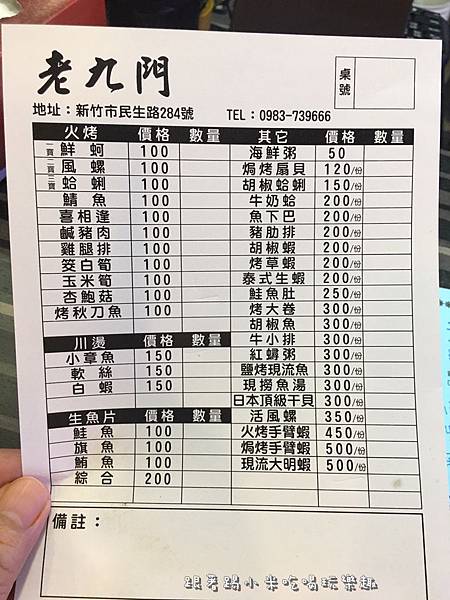 老九門
桌號
地址：新竹市民生路284號 TEL：0983-739666
火烤 價格 數量
一買 鮮蚵 100
二買 風螺 100
三買 蛤蜊 100
鯖魚 100
喜相逢 100
鹹豬肉 100
雞腿排 100
筊白筍 100
玉米筍 100
杏鮑菇 100
烤秋刀魚 100
川燙 價格 數量
小章魚 150
軟絲 150
白蝦 150
生魚片 價格 數量
鮭魚 100
旗魚 100
鮪魚 100
綜合 200
其它 價格 數量
海鮮粥 50
焗烤扇貝 120/份
胡椒蛤蜊 150/份
牛奶蛤 200/份
魚下巴 200/份
豬肋排 200/份
胡椒蝦 200/份
烤草蝦 200/份
泰式生蝦 200/份
鮭魚肚 250/份
烤大卷 300/份
胡椒魚 300/份
牛小排 300/份
紅蟳粥 300/份
鹽烤現流魚 300/份
現撈魚湯 300/份
日本頂級干貝 300/份
活風螺 350/份
火烤手臂蝦 450/份
焗烤手臂蝦 500/份
現流大明蝦 500/份
備註：
跟著踢小米吃喝玩樂趣